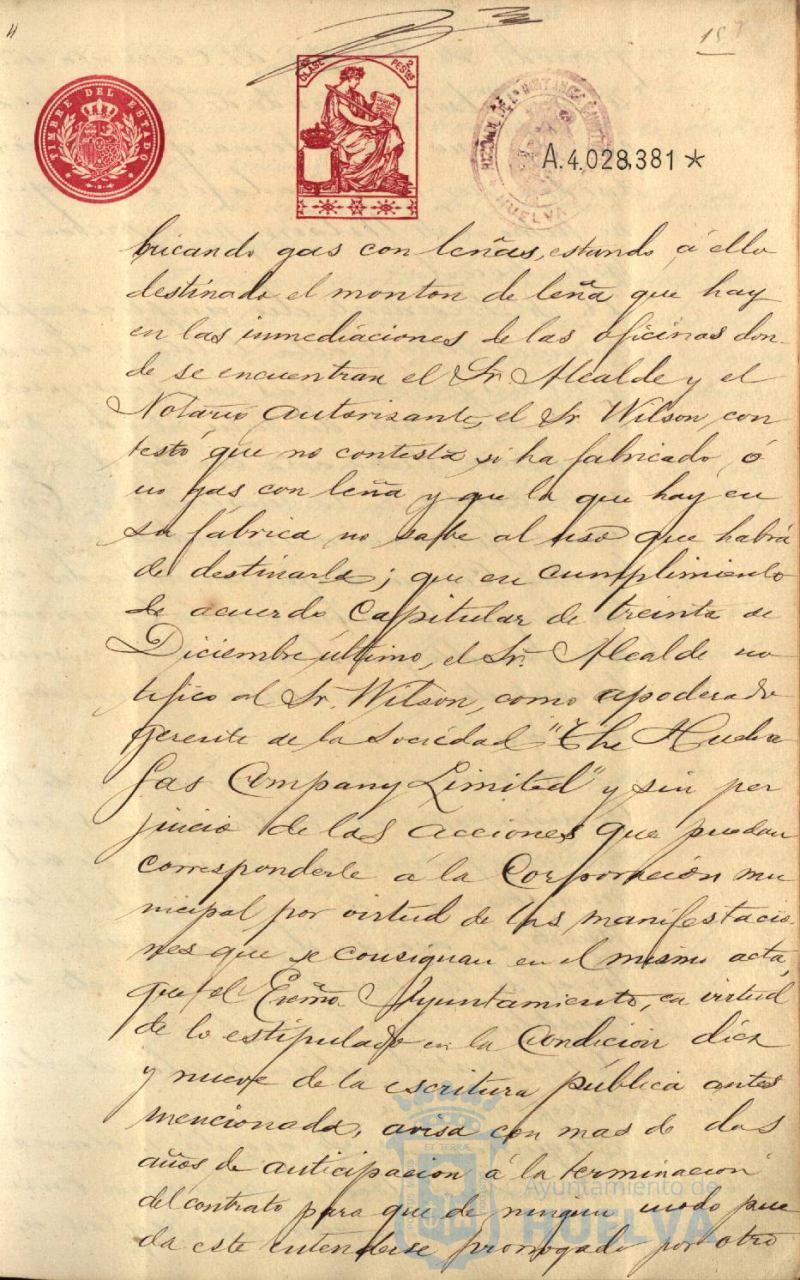 15
TIMBRE DEL ESTADO
CLASE
2 PESTAS
HUELVA
A.4.028,381 *
bricando gas con leñas, estando á ello
destinado el monton de leña que hay
en las inmediaciones de las oficinas don-
de se encuentran el Sr. Alcalde y el
Notario autorizante, el Sr Wilson, con
testó que no contesta si ha fabricado, ó
no gas con leña y que la que hay en
su fábrica no sabe al uso que habrá
de destinarla; que en cumplimiento
de acuerdo Capitular de treinta de
Diciembre último, el Sr. Alcalde no
tifico al Sr. Wilson, como apoderado
gerente de la Sociedad "The Huelva
Gas Company Limited" y sin per
juicio de las acciones que puedan
corresponderle á la Corporación mu
nicipal por virtud de las manifestacio-
nes que se consignan en el mismo acta,
que el Excmo. Ayuntamiento, en virtud
de lo estipulado en la Condición diez
y nueve de la escritura pública antes
mencionada, avisa con mas de dos
años de anticipacion á la terminacion
del contrato para que de ningun modo pue
da este entenderse prorrogado por otro
Ayuntamiento de
HUELVA